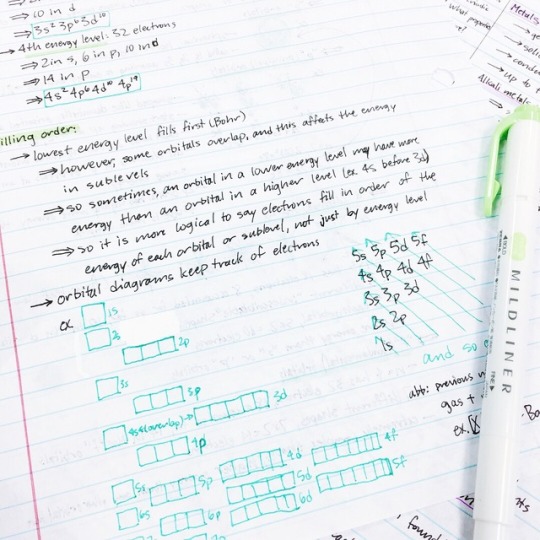 ⇒ 10 in d
⇒ 3s² 3p⁶ 3d¹⁰
→ 4th energy level: 32 electrons
⇒ 2 in s, 6 in p, 10 in d
⇒ 14 in p
⇒ 4s² 4p⁶ 4d¹⁰ 4p¹⁴
illing order:
→ lowest energy level fills first (Bohr)
⇒ however, some orbitals overlap, and this affects the energy
in sublevels
⇒ so sometimes, an orbital in a lower energy level may have more
energy than an orbital in a higher level (ex. 4s before 3d)
⇒ so it is more logical to say electrons fill in order of the
energy of each orbital or sublevel, not just by energy level
→ orbital diagrams keep track of electrons
ex.
1s
2s
2p
3s
3p
4s (overlap) → 3d
4p
5s
5p
4d
4f
6s
6p
5d
6d
5f
5s 5p 5d 5f
4s 4p 4d 4f
3s 3p 3d
2s 2p
1s
and so
abb: previous
gas +
ex.
Metals
Alkali metals
up to
MILDLINER